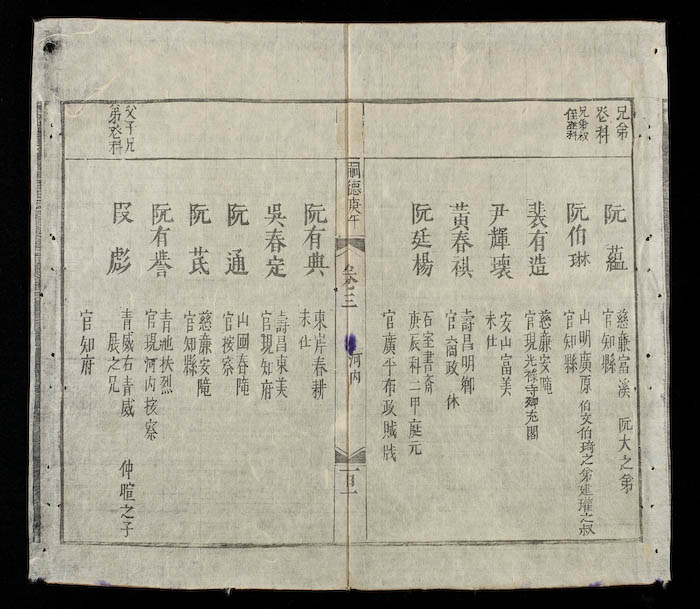 兄弟
登科
兄弟叔
侄登科
阮蘊
慈廉富溪　阮大之弟
官知縣
阮伯琳
山明廣原伯文伯琦之弟建瓘之叔
官知縣
裴有造
慈廉安隴
官現光祿寺卿充閣
尹輝壊
安山富美
未仕
黃春祺
壽昌明鄉
官裔政休
阮廷楊
石室書齋
庚辰科二甲庭元
官廣平布政賊戕
嗣德庚午
卷三
河內
阮有典
東岸春耕
未仕
吳春定
壽昌東美
官現知府
阮通
山圍春隴
官按察
阮芪
慈廉安隴
官知縣
阮有譽
青池扶烈
官現河內按察
段彪
青威右青威　仲暄之子
展之兄
官知府
父子兄
弟登科